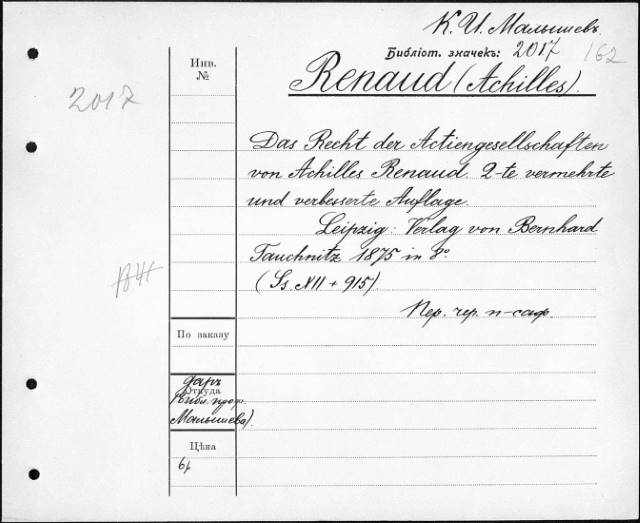 К. И. Малышевъ.
Библіот. значекъ: 2017 162
Renaud (Achilles).
Инв.
№
2017
Das Recht der Actiengesellschaften
von Achilles Renaud. 2-te vermehrte
und verbesserte Auflage.
Leipzig: Verlag von Bernhard
Tauchnitz 1875 in 8°
(Ss. XII + 915).
Пер. чер. п-саф.
По заказу
даръ
Откуда
(библ. проф.
Малышева).
Цѣна
6р